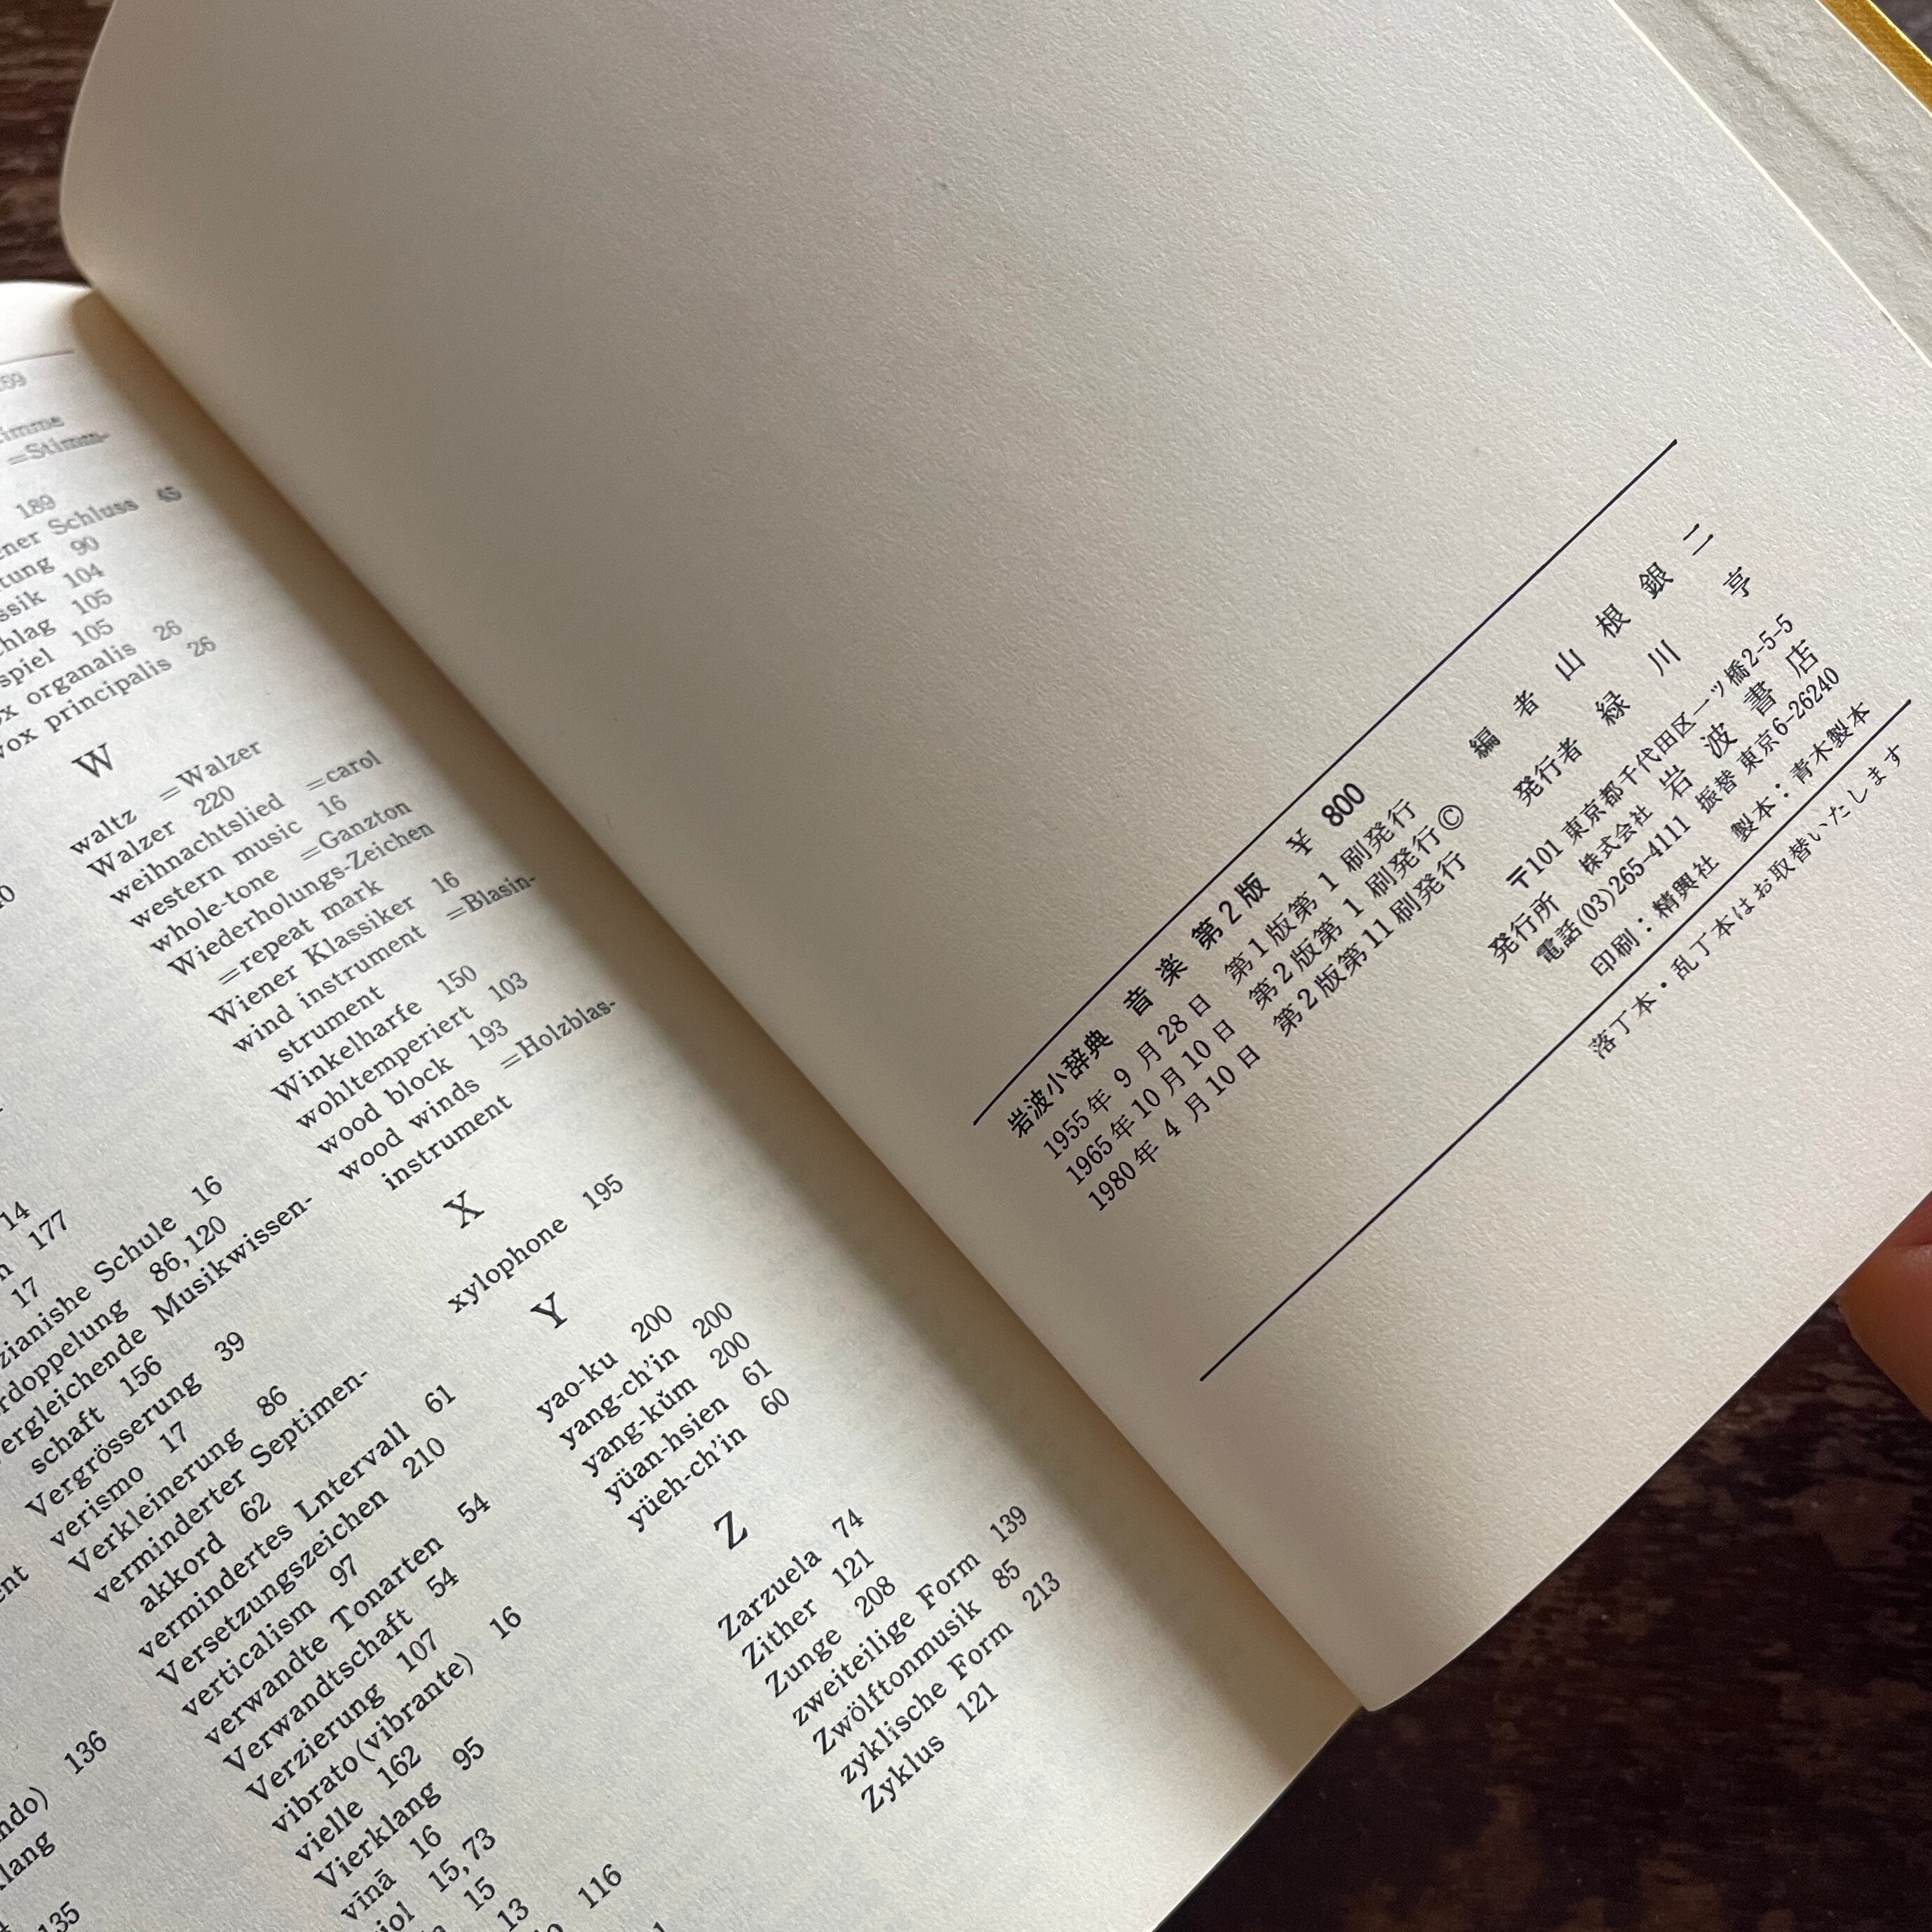 189
90
104
105
105
organalis 26
vox principalis 26
W
waltz =Walzer
Walzer 220
weihnachtslied =carol
western music 16
whole-tone =Ganzton
Wiederholungs-Zeichen
=repeat mark
Wiener Klassiker 16
wind instrument =Blasin-
strument
Winkelharfe 150
wohltemperiert 103
wood block 193
wood winds =Holzblas-
instrument
X
xylophone 195
Y
yao-ku 200
yang-ch'in 200
yang-kŭm 200
yüan-hsien 61
yüeh-ch'in 60
Z
Zarzuela 74
Zither 121
Zunge 208
zweiteilige Form 139
Zwölftonmusik 85
zyklische Form 213
Zyklus 121
14
177
17
Schule 16
86, 120
vergleichende Musikwissen-
schaft 156
Vergrösserung 39
verismo 17
Verkleinerung 86
verminderter Septimen-
akkord 62
vermindertes Lntervall 61
Versetzungszeichen 210
verticalism 97
verwandte Tonarten 54
Verwandtschaft 54
Verzierung 107
vibrato(vibrante) 16
vielle 162
Vierklang 95
vīnā 16
15, 73
15
13
116
136
135
岩波小辞典 音楽 第2版 ¥800
1955年9月28日 第1版第1刷発行
1965年10月10日 第2版第1刷発行©
1980年4月10日 第2版第11刷発行
編者 山根銀二
発行者 緑川亨
〒101 東京都千代田区一ツ橋2-5-5
発行所 株式会社 岩波書店
電話(03)265-4111 振替東京6-26240
印刷:精興社 製本:青木製本
落丁本・乱丁本はお取替いたします